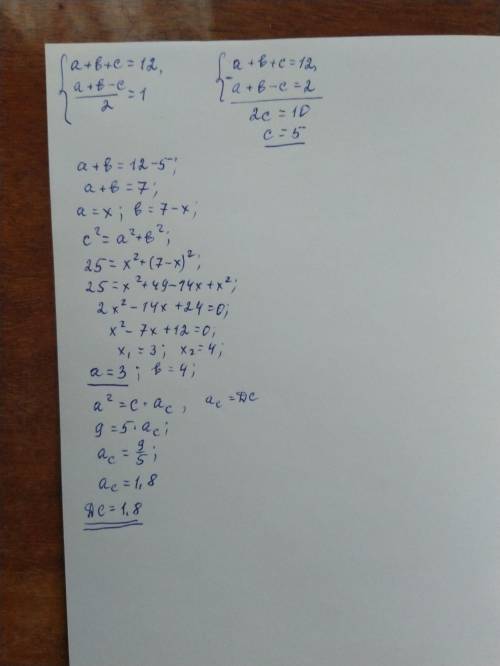 { a+b+c=12,
(a+b-c)/2=1
{ a+b+c=12,
- a+b-c=2
2c=10
c=5
a+b=12-5;
a+b=7;
a=x; b=7-x;
c²=a²+b²;
25=x²+(7-x)²;
25=x²+49-14x+x²;
2x²-14x+24=0;
x²-7x+12=0;
x₁=3; x₂=4;
a=3; b=4;
a²=c·a_c, a_c=DC
9=5·a_c;
a_c=9/5;
a_c=1,8
DC=1,8